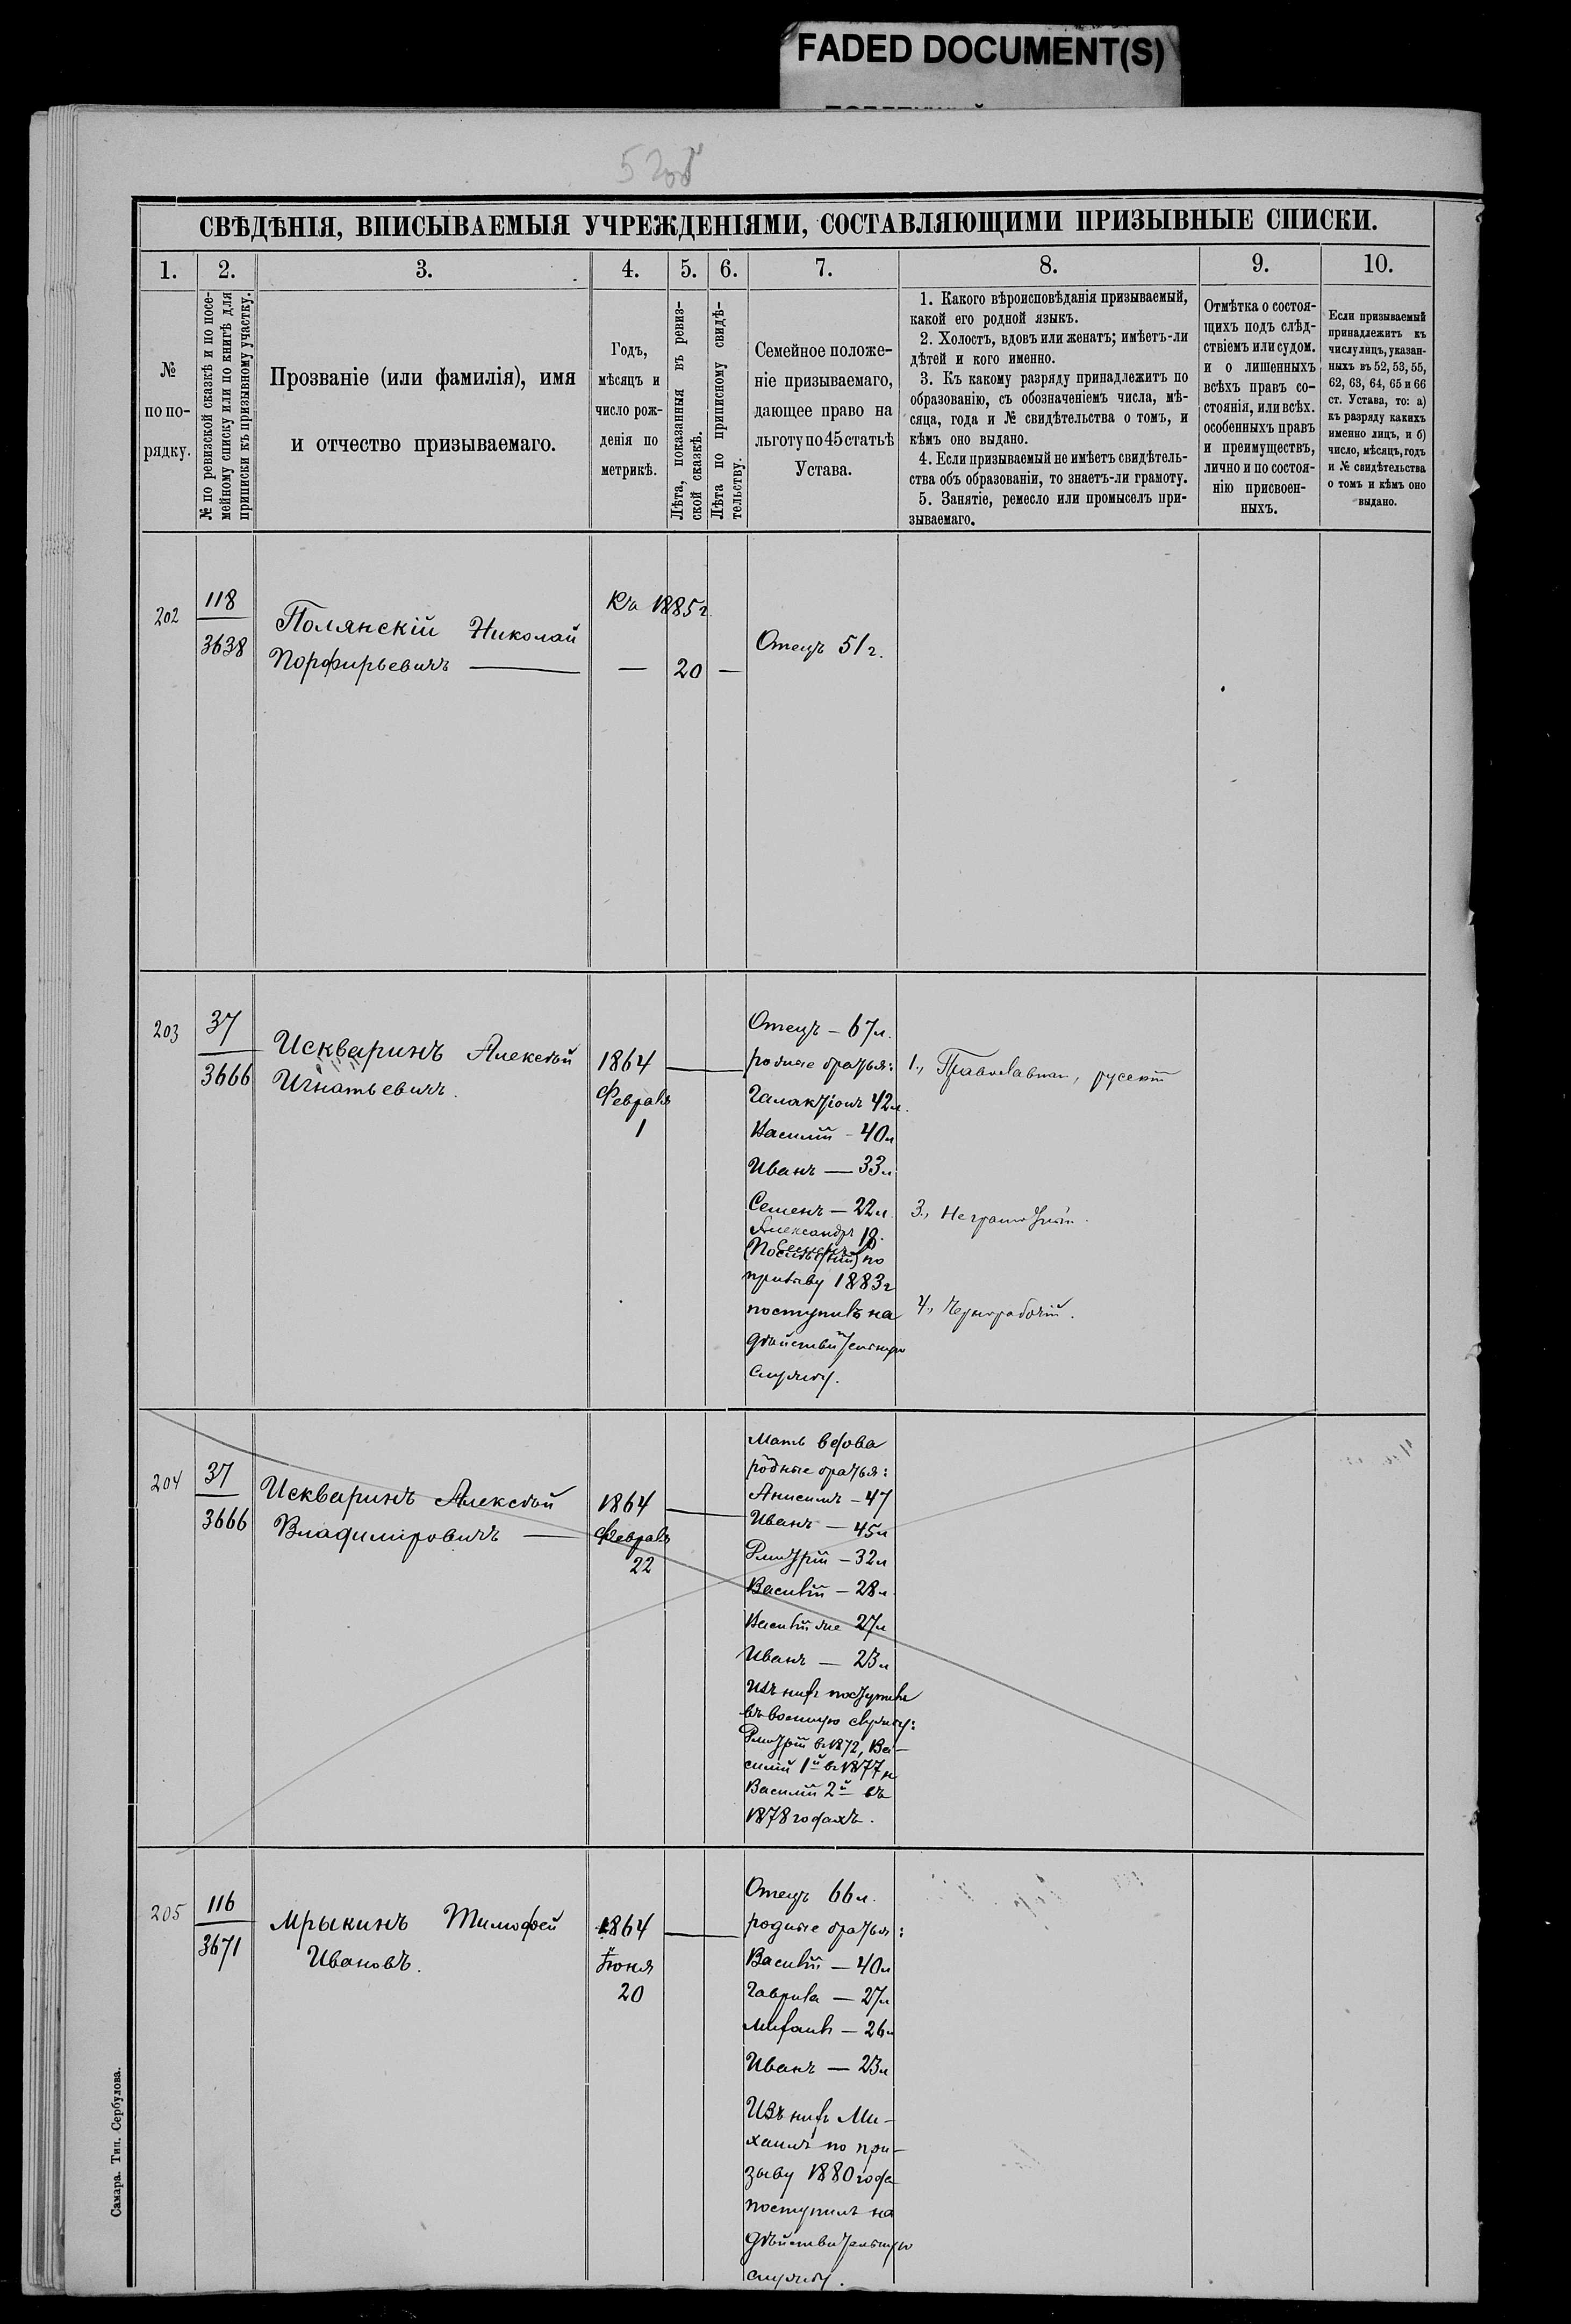 FADED DOCUMENT(S)
520б
СВѢДѢНІЯ, ВПИСЫВАЕМЫЯ УЧРЕЖДЕНІЯМИ, СОСТАВЛЯЮЩИМИ ПРИЗЫВНЫЕ СПИСКИ.
1.
2.
3.
4.
5.
6.
7.
8.
9.
10.
№
по по-
рядку.
№ по ревизской сказкѣ и по посе-
мейному списку или по книгѣ для
приписки къ призывному участку.
Прозваніе (или фамилія), имя
и отчество призываемаго.
Годъ,
мѣсяцъ и
число рож-
денія по
метрикѣ.
Лѣта, показанныя въ ревиз-
ской сказкѣ.
Лѣта по приписному свидѣ-
тельству.
Семейное положе-
ніе призываемаго,
дающее право на
льготу по 45 статьѣ
Устава.
1. Какого вѣроисповѣданія призываемый,
какой его родной языкъ.
2. Холостъ, вдовъ или женатъ; имѣетъ-ли
дѣтей и кого именно.
3. Къ какому разряду принадлежитъ по
образованію, съ обозначеніемъ числа, мѣ-
сяца, года и № свидѣтельства о томъ, и
кѣмъ оно выдано.
4. Если призываемый не имѣетъ свидѣтель-
ства объ образованіи, то знаетъ-ли грамоту.
5. Занятіе, ремесло или промыселъ при-
зываемаго.
Отмѣтка о состоя-
щихъ подъ слѣд-
ствіемъ или судом.
и о лишенныхъ
всѣхъ правъ со-
стоянія, или всѣх.
особенныхъ правъ
и преимуществъ,
лично и по состоя-
нію присвоен-
ныхъ.
Если призываемый
принадлежитъ къ
числу лицъ, указан-
ныхъ въ 52, 53, 55,
62, 63, 64, 65 и 66
ст. Устава, то: а)
къ разряду какихъ
именно лицъ, и б)
число, мѣсяцъ, годъ
и № свидѣтельства
о томъ и кѣмъ оно
выдано.
202
118
3638
Полянскій Николай
Порфирьевичъ —
Къ 1885 г.
— 20 —
Отецъ 51 г.
203
37
3666
Искваринъ Алексѣй
Игнатьевичъ.
1864
Февраля
1
Отецъ – 67 л.
родные братья:
Галактіонъ 42 л.
Василій – 40 л
Иванъ — 33 л
Семенъ — 22 л.
Александръ 18
Семенъ
по
призыву 1883 г
поступилъ на
дѣйствительную
службу.
1., Православнаго, русскій
3., Неграмотный.
4., Чернорабочій.
204
37
3666
Искваринъ Алексѣй
Владиміровичъ —
1864
Февраля
22
Мать вдова
родные братья:
Анисимъ – 47
Иванъ — 45 л
Дмитрій – 32 л
Василій – 28 л
Василій же 27 л
Иванъ — 23 л
Изъ нихъ поступили
въ военную службу:
Дмитрій въ 1872, Ва-
силій 1й въ 1877 и
Василій 2й въ
1878 годахъ.
205
116
3671
Мрыкинъ Тимофей
Ивановъ.
1864
Іюня
20
Отецъ 66 л.
родные братья:
Василій — 40 л
Гаврила — 27 л
Михаилъ — 26 л
Иванъ — 23 л
Изъ нихъ Ми-
хаилъ по при-
зыву 1880 года
поступилъ на
дѣйствительную
службу.
Самара. Тип. Сербулова.